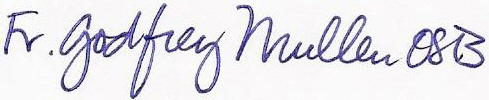 Fr. Godfrey Mullen OSB